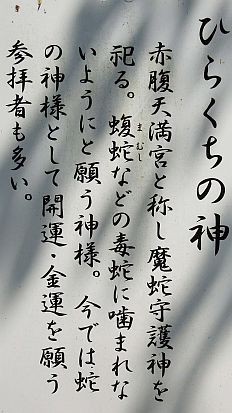 ひらくちの神
赤腹天満宮と称し魔蛇守護神を
祀る。蝮蛇などの毒蛇に噛まれな
いようにと願う神様。今では蛇
の神様として開運・金運を願う
参拝者も多い。
まむし